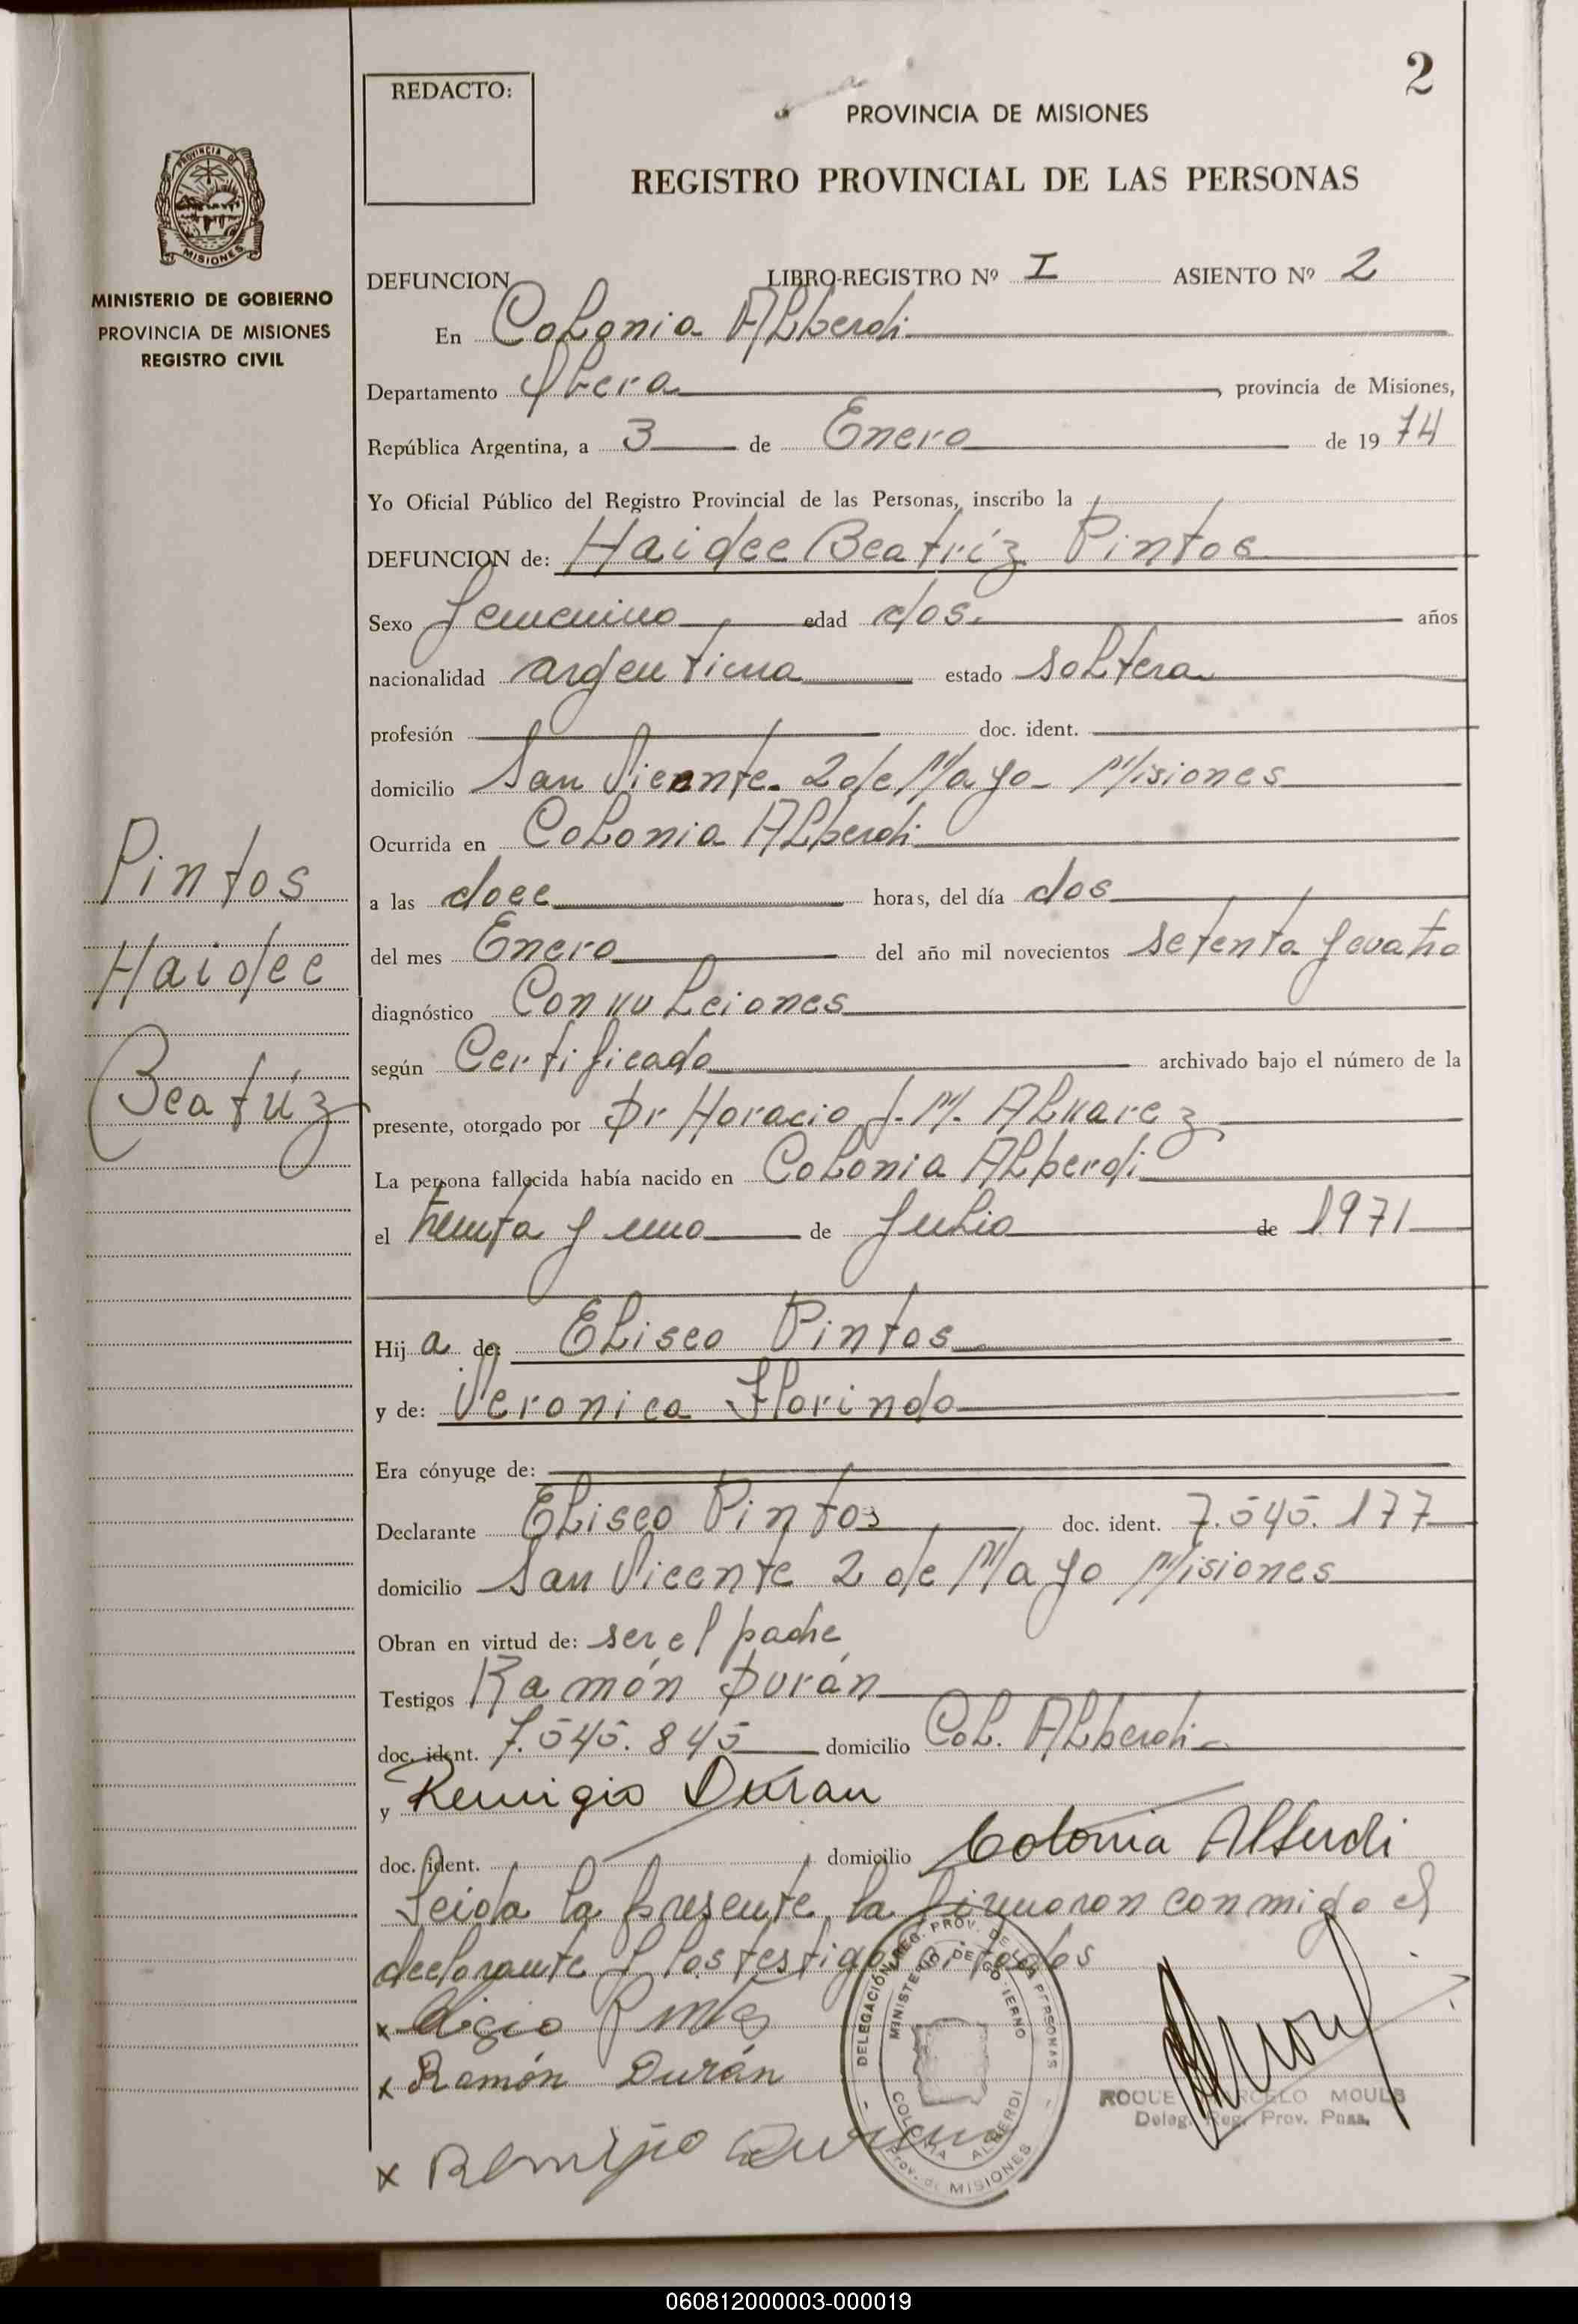 2
REDACTO:
PROVINCIA DE MISIONES
REGISTRO PROVINCIAL DE LAS PERSONAS
PROVINCIA DE
MISIONES
MINISTERIO DE GOBIERNO
PROVINCIA DE MISIONES
REGISTRO CIVIL
DEFUNCION LIBRO-REGISTRO Nº I ASIENTO Nº 2
En Colonia Alberdi
Departamento Obera, provincia de Misiones,
República Argentina, a 3 de Enero de 19 74
Yo Oficial Público del Registro Provincial de las Personas, inscribo la
DEFUNCION de: Haidee Beatríz Pintos
Sexo femenino edad dos. años
nacionalidad argentina estado soltera
profesión doc. ident.
domicilio San Vicente. 2 de Mayo - Misiones
Ocurrida en Colonia Alberdi
a las doce horas, del día dos
del mes Enero del año mil novecientos setenta y cuatro
diagnóstico Convulciones
según Certificado archivado bajo el número de la
presente, otorgado por Dr Horacio J. M. Alvarez
La persona fallecida había nacido en Colonia Alberdi
el treinta y uno de Julio de 1971
Pintos
Haidee
Beatríz
Hij a de: Eliseo Pintos
y de: Veronica Florindo
Era cónyuge de:
Declarante Eliseo Pintos doc. ident. 7.545.177
domicilio San Vicente 2 de Mayo Misiones
Obran en virtud de: ser el padre
Testigos Ramón Durán
doc. ident. 7.545.845 domicilio Col. Alberdi
y Remigio Duran
doc. ident. domicilio Colonia Alberdi
Leida la presente, la firmaron conmigo el
declarante y los testigos citados
x
x Ramón Durán
x Remigio Duran
DELEGACIÓN REG. PROV. DE LAS PERSONAS
MINISTERIO DE GOBIERNO
COLONIA ALBERDI
Prov. de MISIONES
ROQUE MARCELO MOULS
Deleg. Reg. Prov. Pnas.
060812000003-000019